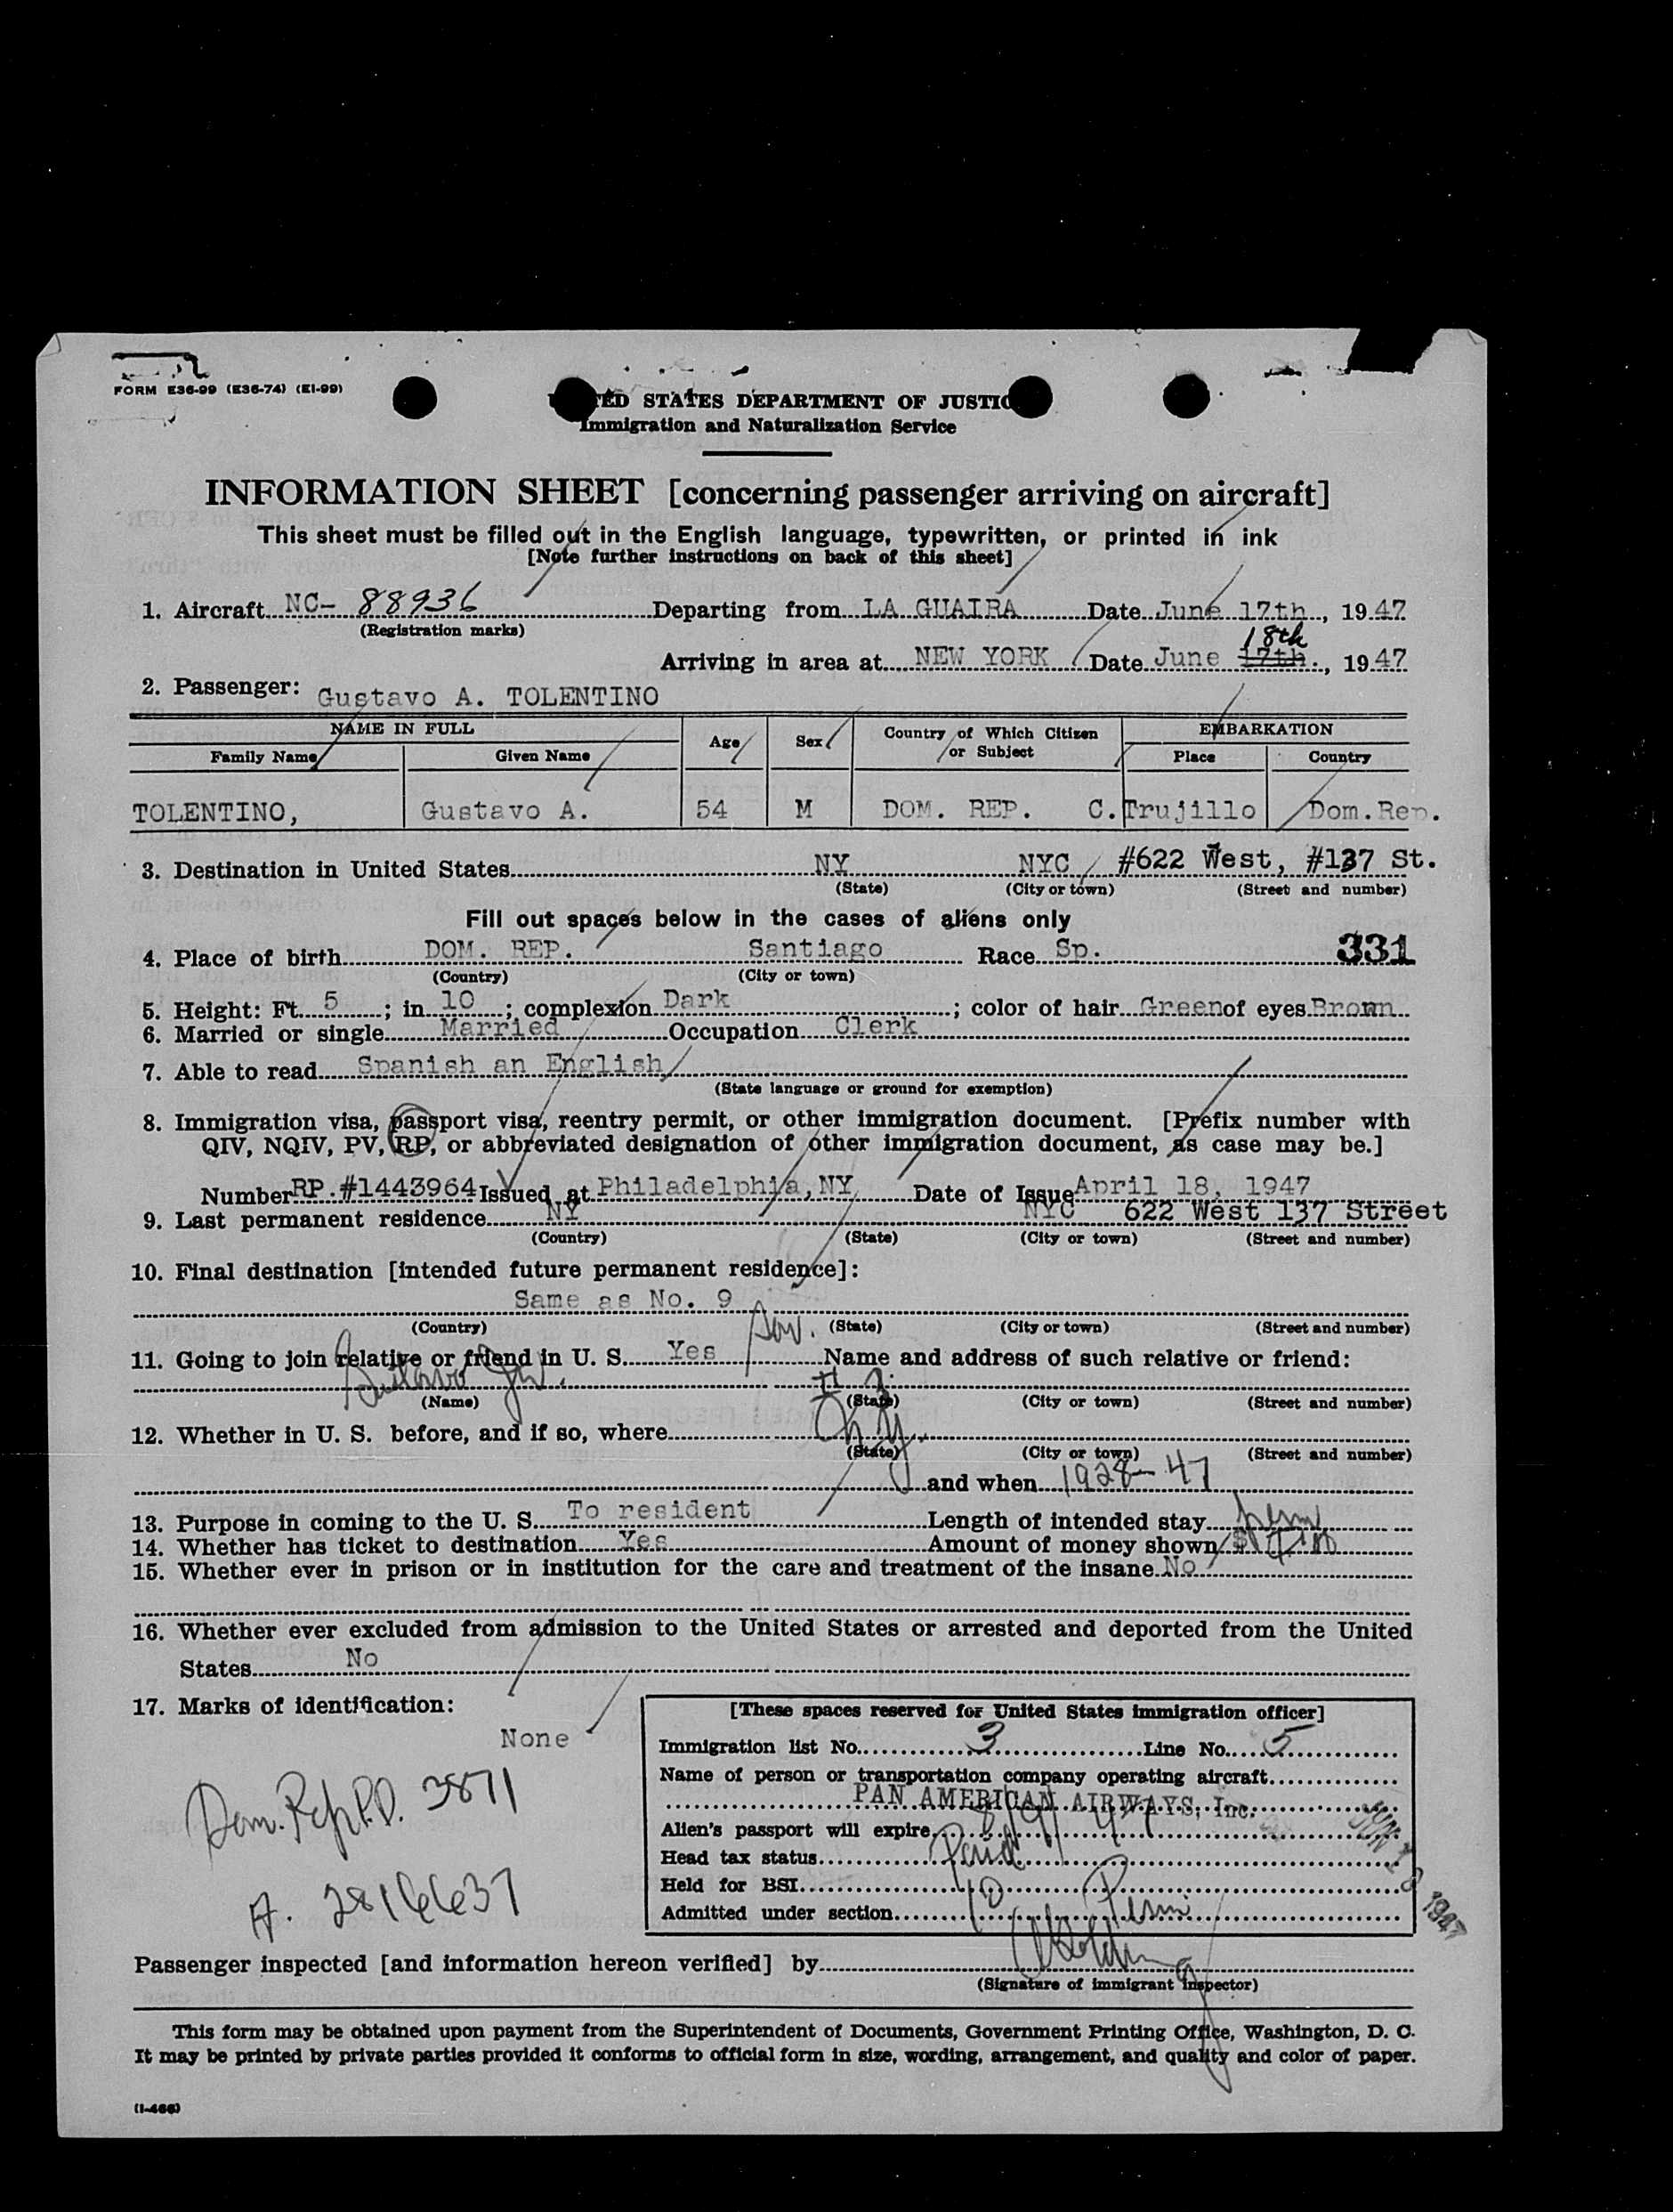 FORM E36-99 (E36-74) (E1-99)
TED STATES DEPARTMENT OF JUSTIC
Immigration and Naturalization Service
INFORMATION SHEET [concerning passenger arriving on aircraft]
This sheet must be filled out in the English language, typewritten, or printed in ink
[Note further instructions on back of this sheet]
1. Aircraft NC- 88936 Departing from LA GUAIRA Date June 17th, 1947
(Registration marks)
18th
Arriving in area at NEW YORK Date June 17th, 1947
2. Passenger: Gustavo A. TOLENTINO
NAME IN FULL Age Sex Country of Which Citizen or Subject EMBARKATION
Family Name Given Name Place Country
TOLENTINO, Gustavo A. 54 M DOM. REP. C.Trujillo Dom.Rep.
3. Destination in United States NY NYC #622 West, #137 St.
(State) (City or town) (Street and number)
Fill out spaces below in the cases of aliens only
4. Place of birth DOM. REP. Santiago Race Sp. 331
(Country) (City or town)
5. Height: Ft. 5; in. 10; complexion Dark; color of hair Green of eyes Brown
6. Married or single Married Occupation Clerk
7. Able to read Spanish an English
(State language or ground for exemption)
8. Immigration visa, passport visa, reentry permit, or other immigration document. [Prefix number with
QIV, NQIV, PV, RP, or abbreviated designation of other immigration document, as case may be.]
Number RP.#1443964 Issued at Philadelphia, NY Date of Issue April 18, 1947
9. Last permanent residence NY NYC 622 West 137 Street
(Country) (State) (City or town) (Street and number)
10. Final destination [intended future permanent residence]:
Same as No. 9
(Country) (State) (City or town) (Street and number)
11. Going to join relative or friend in U. S. Yes Name and address of such relative or friend:
(Name) (State) (City or town) (Street and number)
12. Whether in U. S. before, and if so, where
(State) (City or town) (Street and number)
and when 1928-47
13. Purpose in coming to the U. S. To resident Length of intended stay perm
14. Whether has ticket to destination Yes Amount of money shown
15. Whether ever in prison or in institution for the care and treatment of the insane No
16. Whether ever excluded from admission to the United States or arrested and deported from the United
States No
17. Marks of identification:
None
Dom. Rep P.P. 3871
A. 2816637
[These spaces reserved for United States immigration officer]
Immigration list No. 3 Line No. 5
Name of person or transportation company operating aircraft
PAN AMERICAN AIRWAYS, Inc.
Alien's passport will expire
Head tax status Paid
Held for BSI
Admitted under section Perm
JUN 18 1947
Passenger inspected [and information hereon verified] by
(Signature of immigrant inspector)
This form may be obtained upon payment from the Superintendent of Documents, Government Printing Office, Washington, D. C.
It may be printed by private parties provided it conforms to official form in size, wording, arrangement, and quality and color of paper.
(1-466)